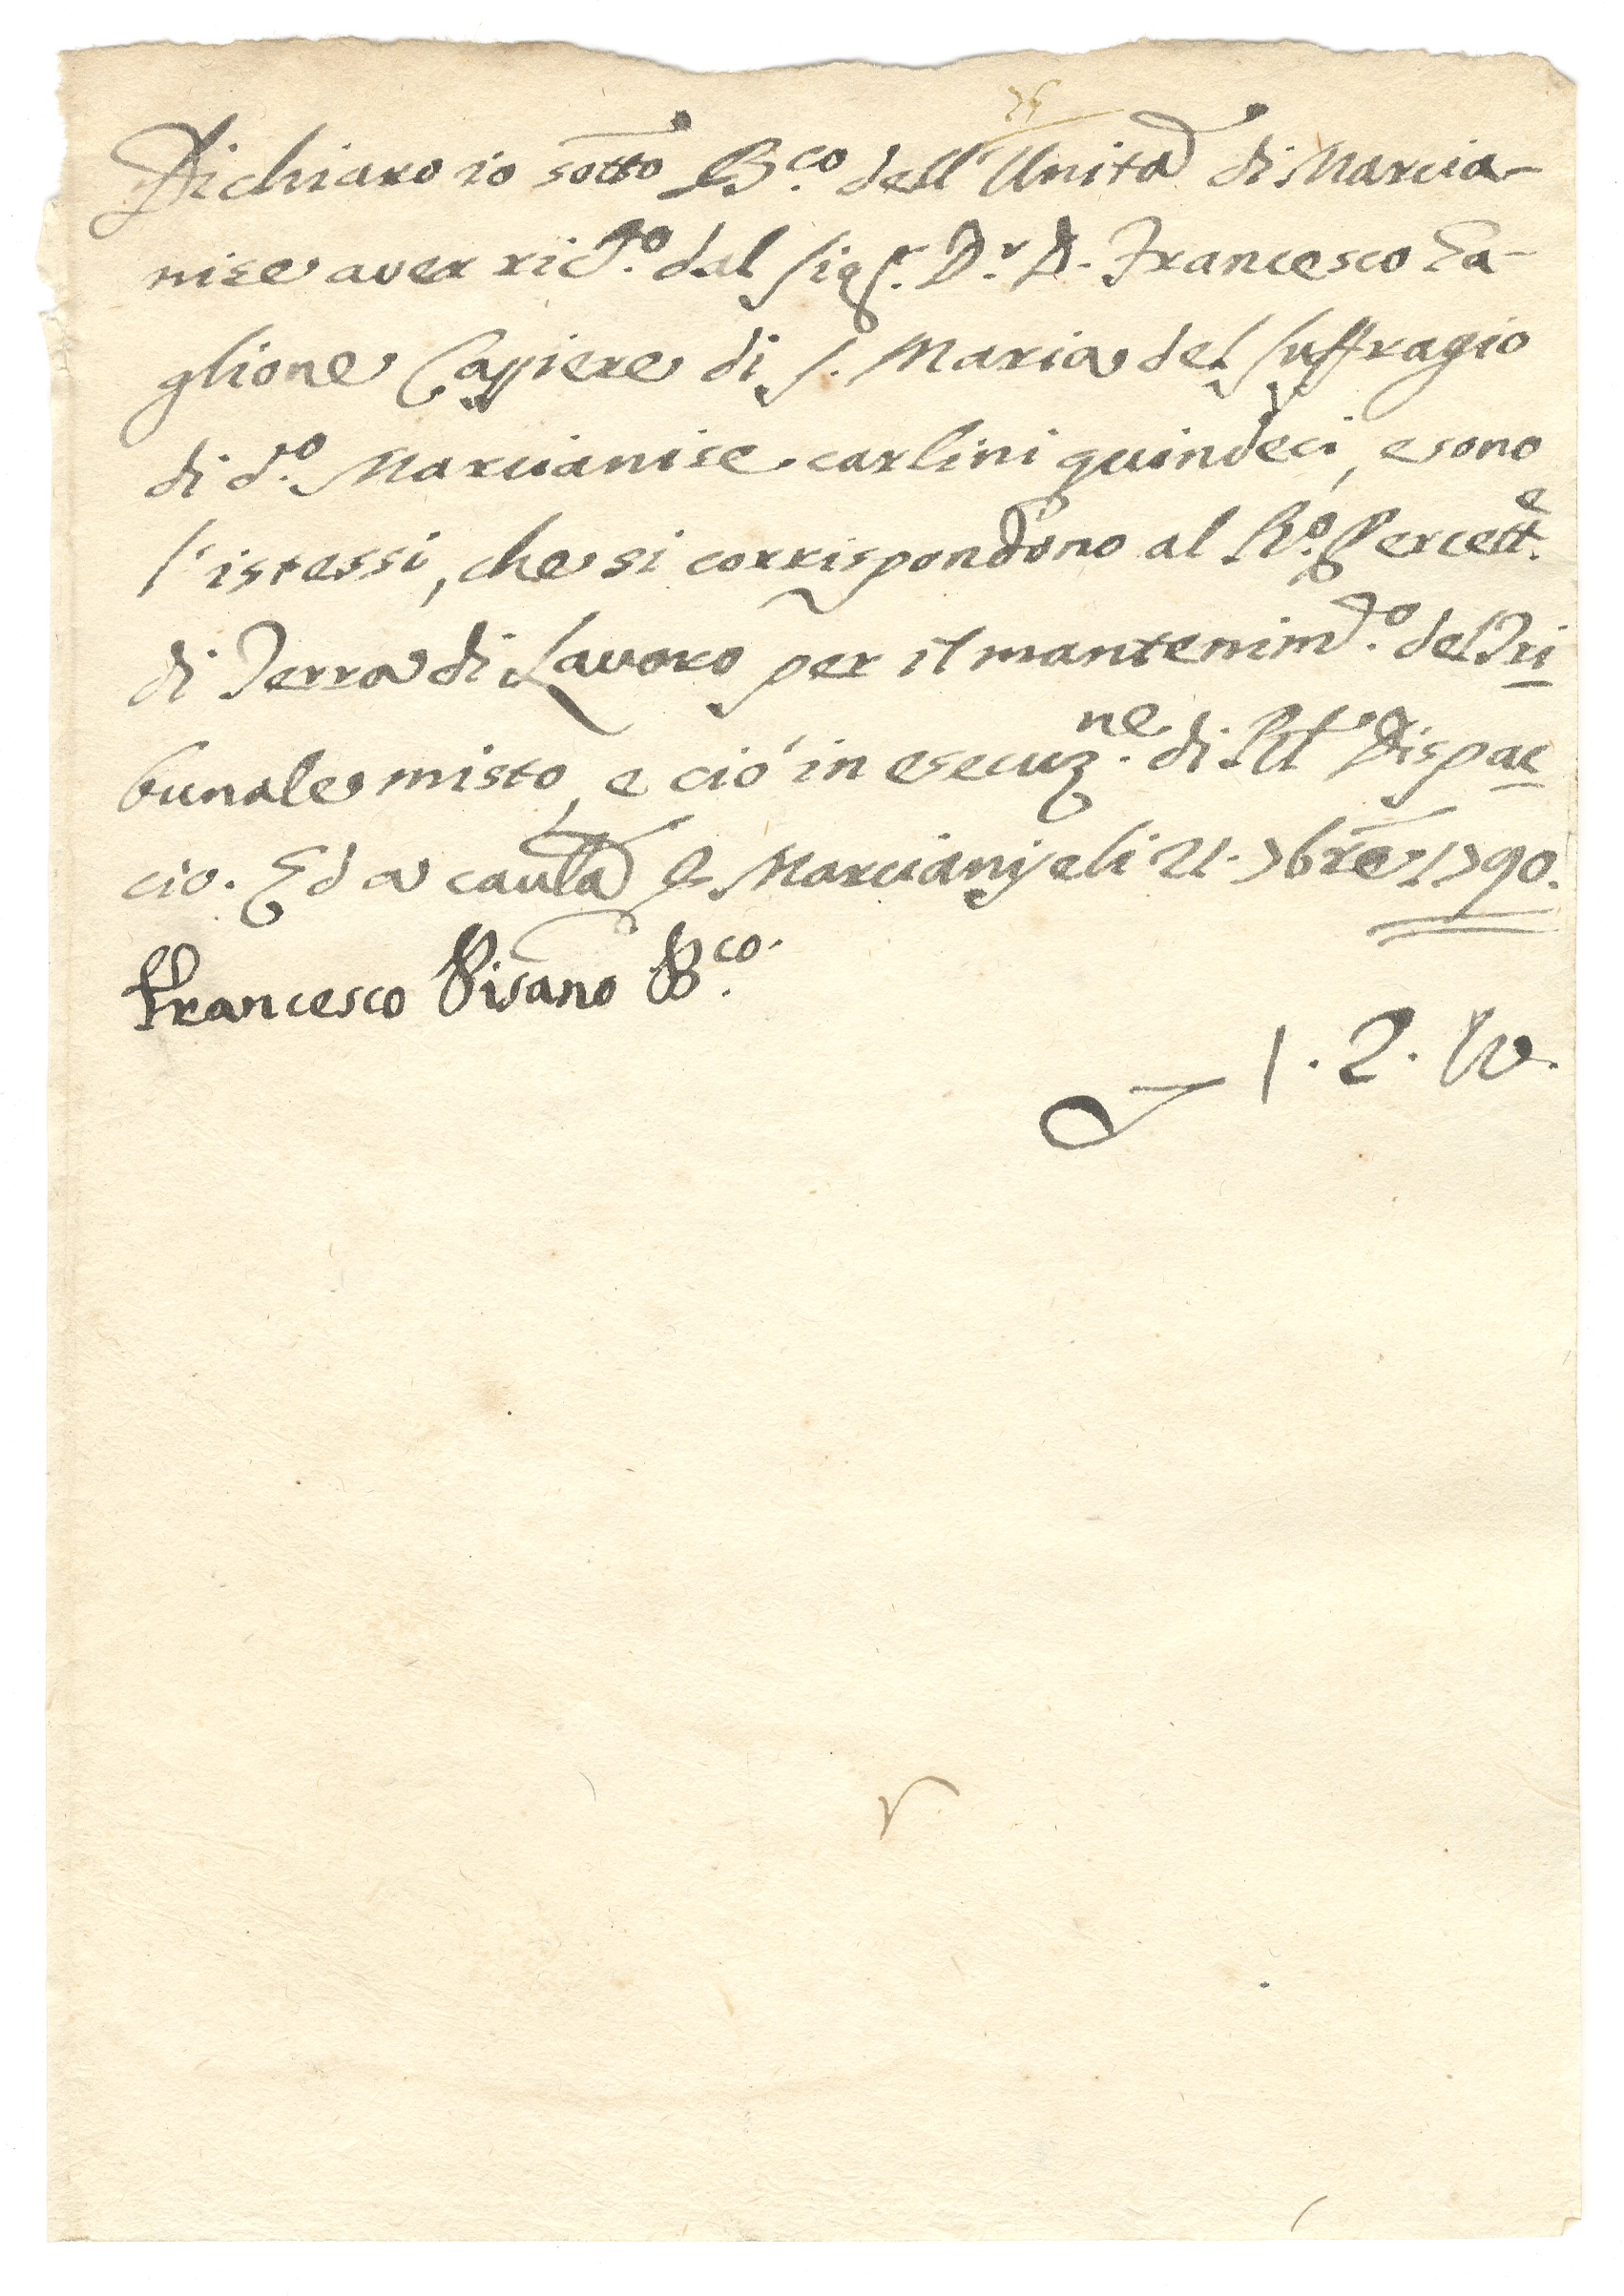 Dichiaro io sotto B.co dell'Unità di Marcia-
nise aver ric.to dal Sig.r D.r D. Francesco Ta-
glione Cassiere di S. Maria del Suffragio
di d.o Marcianise carlini quindeci, e sono
l'istessi, che si corrispondono al R.o Percett.e
di Terra di Lavoro per il mantenim.to del Tri
bunale misto, e ciò in esecuz.ne di Rl Dispac
cio. Ed a cautla &. Marcianise li 21. 7bre 1790.
Francesco Pisano B.co
1. 2. 10.